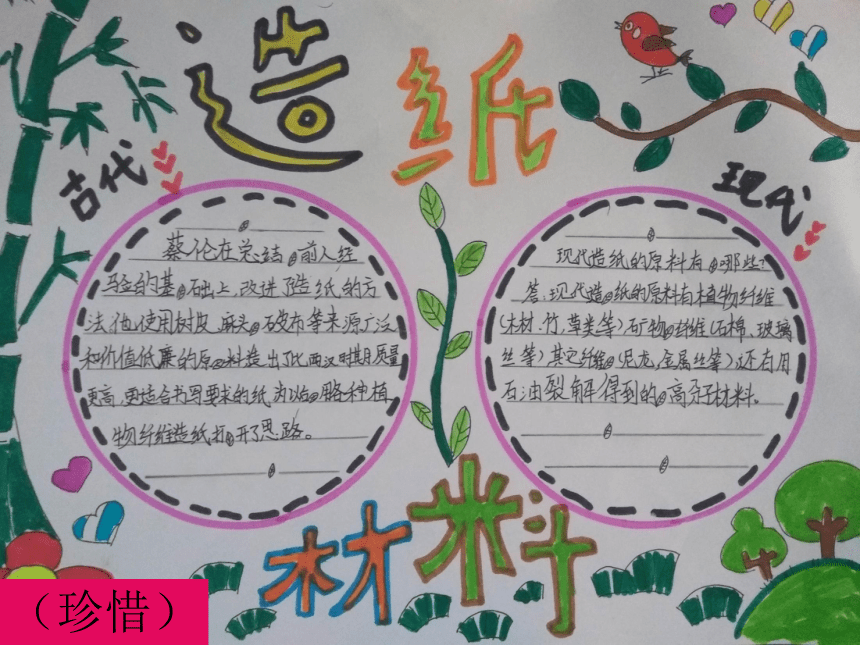 造纸
古代
蔡伦在总结前人经
验的基础上,改进了造纸的方
法,他使用树皮、麻头、破布等来源广泛
和价值低廉的原料造出了比西汉时期质量
更高,更适合书写要求的纸,为以后用各种植
物纤维造纸打开了思路。
现代
现代造纸的原料有哪些?
答:现代造纸的原料有植物纤维
(木材、竹、草类等)矿物纤维(石棉、玻璃
丝等)其它纤维(尼龙、金属丝等)还有用
石油裂解得到的高分子材料。
材料
(珍惜)